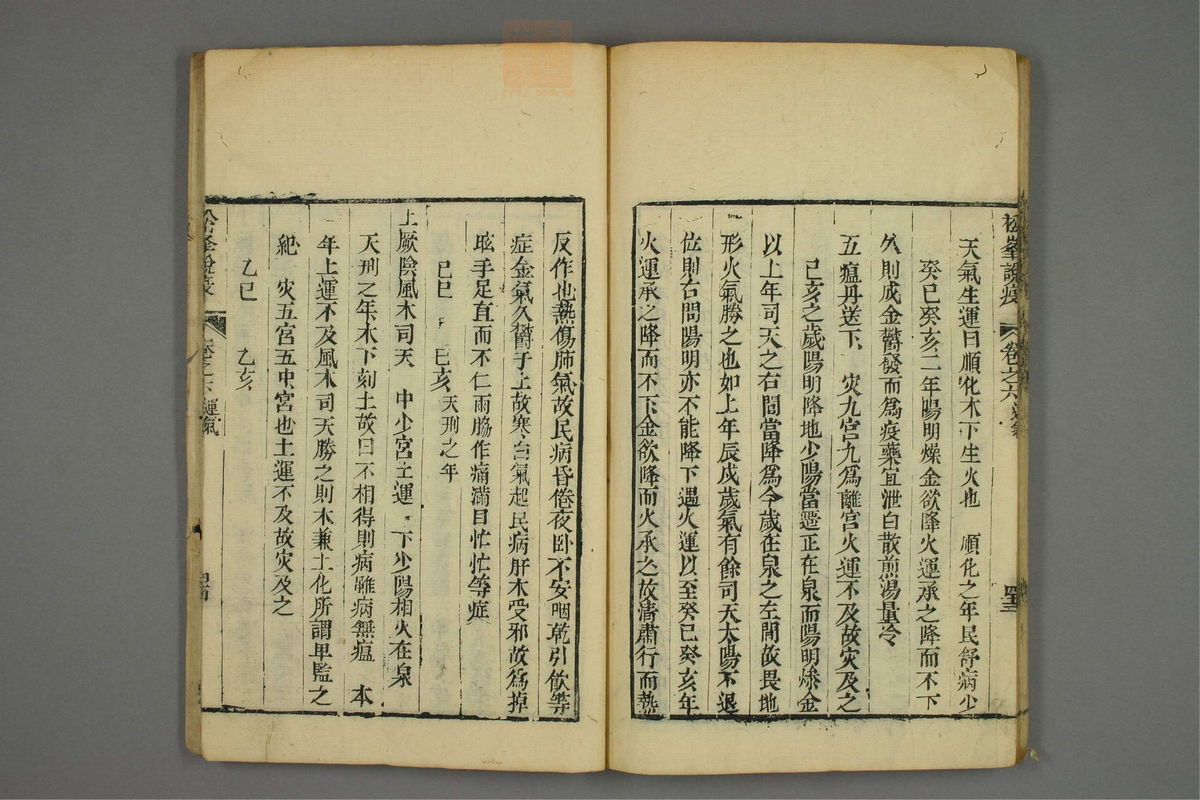 松峯說疫 卷之六 運氣 四三
天氣生運曰順化木下生火也 順化之年民舒病少
癸巳癸亥二年陽明燥金欲降火運承之降而不下
久則成金鬱發而爲疫藥宜泄白散煎湯量冷
五瘟丹送下 灾九宮九爲離宮火運不及故灾及之
己亥之歲陽明降地少陽當遷正在泉而陽明燥金
以上年司天之右間當降爲今歲在泉之左間故畏地
形火氣勝之也如上年辰戌歲氣有餘司天太陽不退
位則右間陽明亦不能降下遇火運以至癸巳癸亥年
火運承之降而不下金欲降而火承之故清肅行而熱
反作也熱傷肺氣故民病昏倦夜卧不安咽乾引飲等
症金氣久鬱于上故寒白氣起民病肝木受邪故爲掉
眩手足直而不仁兩脇作痛滿目忙忙等症
己巳 己亥 天刑之年
上厥陰風木司天 中少宮土運 下少陽相火在泉
天刑之年木下刻土故曰不相得則病雖病無瘟 本
年上運不及風木司天勝之則木兼土化所謂卑監之
紀 灾五宮五中宮也土運不及故灾及之
乙巳 乙亥
松峯說疫 卷之六 運氣 四四